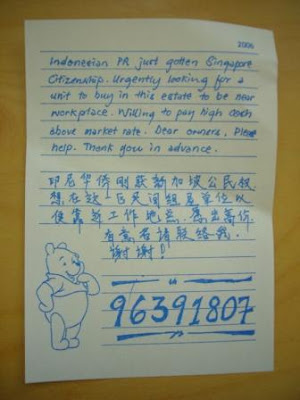 2006
Indonesian PR just gotten Singapore
Citizenship. Urgently looking for a
unit to buy in this estate to be near
workplace. Willing to pay high cash
above market rate. Dear owners, Please
help. Thank you in advance.
印尼华侨刚获新加坡公民权
想在这一区买间组屋单位以
便靠近工作地点. 愿出高价
有意者请联络我.
谢谢!
96391807